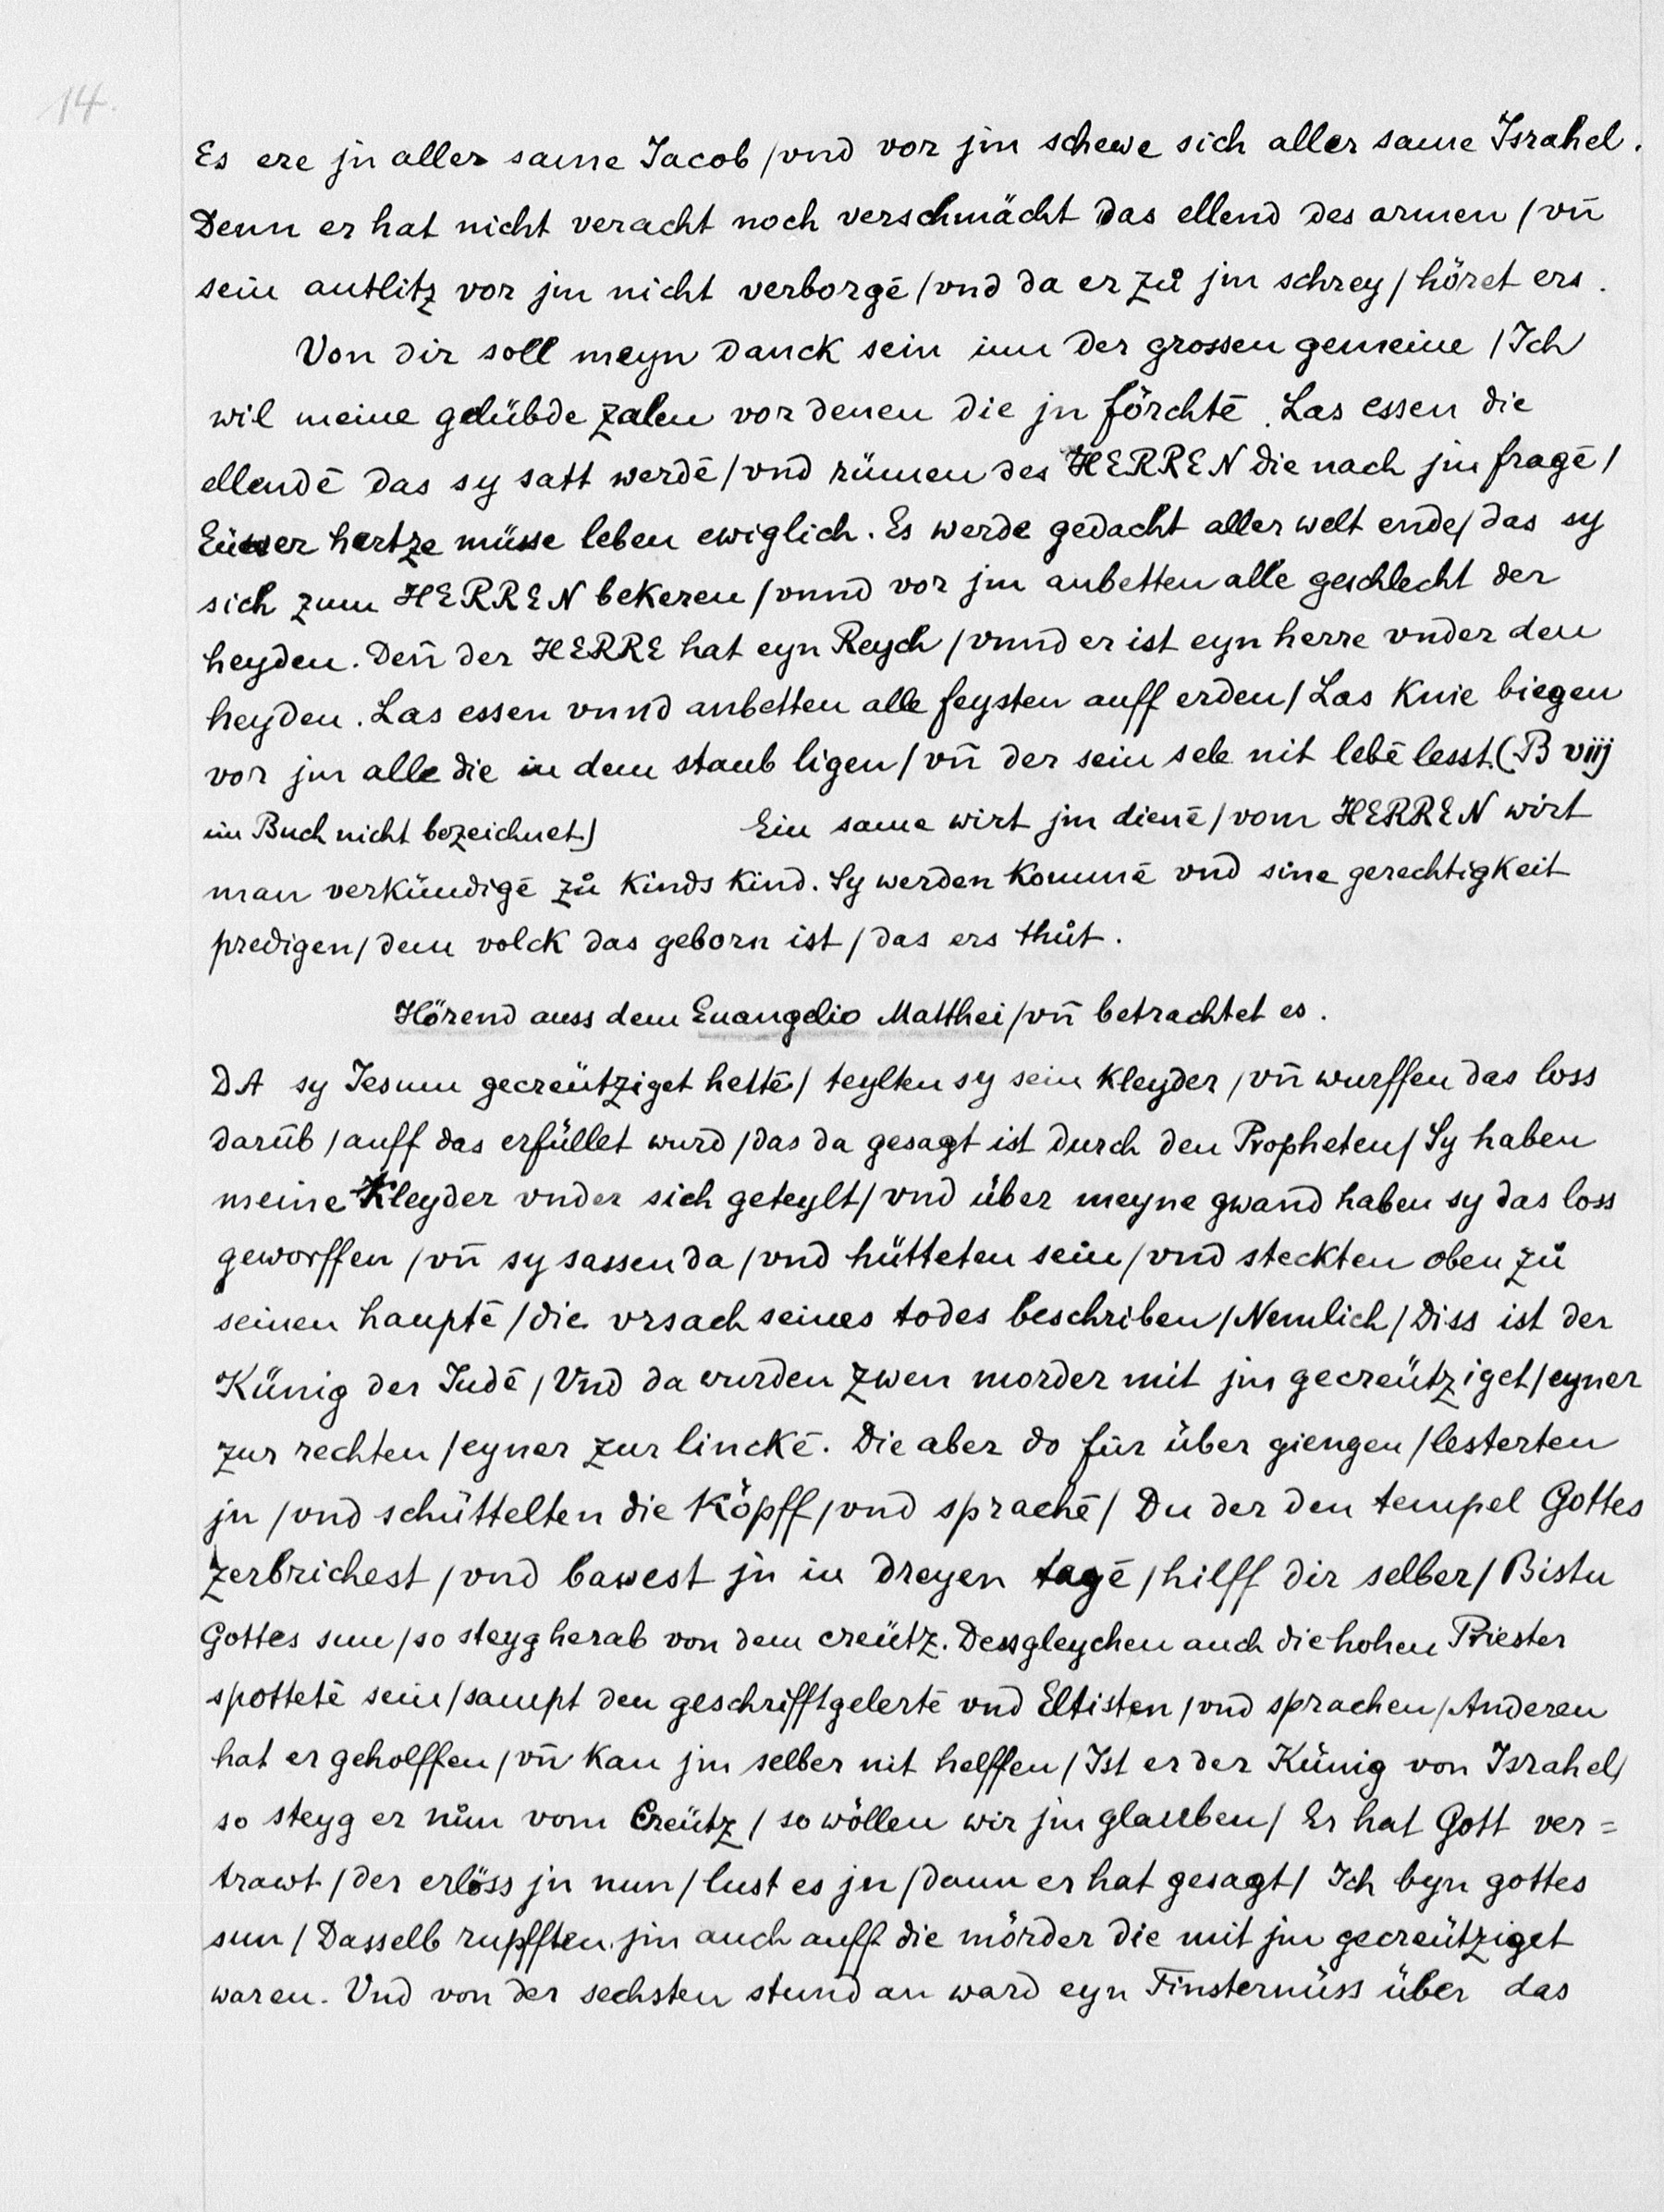 14.
Es ere jn aller same Jacob / vnd vor jm schewe sich aller same Israhel.
Denn er hat nicht veracht noch verschmächt das ellend des armen / vn̄
sein antlitz vor jm nicht verborgē / vnd da er zů jm schrey / höret ers.
Von dir soll meyn danck sein inn der grossen gemeine / Ich
wil meine gelübde zalen vor denen die jn förchtē. Las essen die
ellendē das sy satt werdē / vnd rümen des HERREN die nach jm fragē /
Eüwer hertze müsse leben ewiglich. Es werde gedacht aller welt ende / das sy
sich zum HERREN bekeren / vnnd vor jm anbetten alle geschlecht der
heyden. Den̄ der HERRE hat eyn Reych / vnnd er ist eyn herre vnder den
heyden. Las essen vnnd anbetten alle feysten auff erden / Las knie biegen
vor jm alle die in dem staub ligen / vn̄ der sein sele nit lebē lesst. (B viij
im Buch nicht bezeichnet) Ein same wirt jm dienē / vom HERREN wirt
man verkündigē zů kinds kind. Sy werden kommē vnd sine gerechtigkeit
predigen / dem volck das geborn ist / das ers thůt.
Hörend auss dem Euangelio Matthei / vn̄ betrachtet es.
DA sy Jesum gecreütziget hettē / teylten sy sein kleyder / vn̄ wurffen das loss
darüb / auff das erfüllet wurd / das da gesagt ist durch den Propheten / Sy haben
meine Kleyder vnder sich geteylt / vnd über meyne gwand haben sy das loss
geworffen / vn̄ sy sassen da / vnd hütteten sein / vnd steckten oben zů
seinen hauptē / die vrsach seines todes beschriben / Nemlich / Diss ist der
Künig der Judē / Vnd da wurden zwen morder mit jm gecreütziget / eyner
zur rechten / eyner zur linckē. Die aber do für über giengen / lesterten
jn / vnd schüttelten die Köpff / vnd sprachē / Du der den tempel Gottes
zerbrichest / vnd bawest jn in dreyen tagē / hilff dir selber / Bistu
Gottes sun / so steyg herab von dem creütz. Dessgleychen auch die hohen Priester
spottetē sein / sampt den geschrifftgelertē vnd Eltisten / vnd sprachen / Anderen
hat er geholffen / vn̄ kan jm selber nit helffen / Ist er der Künig von Israhel /
so steyg er nůn vom Creütz / so wöllen wir jm glauben / Er hat Gott ver=
trawt / der erlöss jn nun / lust es jn / dann er hat gesagt / Ich byn gottes
sun / Dasselb rupfften jm auch auff die mörder die mit jm gecreütziget
waren. Vnd von der sechsten stund an ward eyn Finsternüss über das